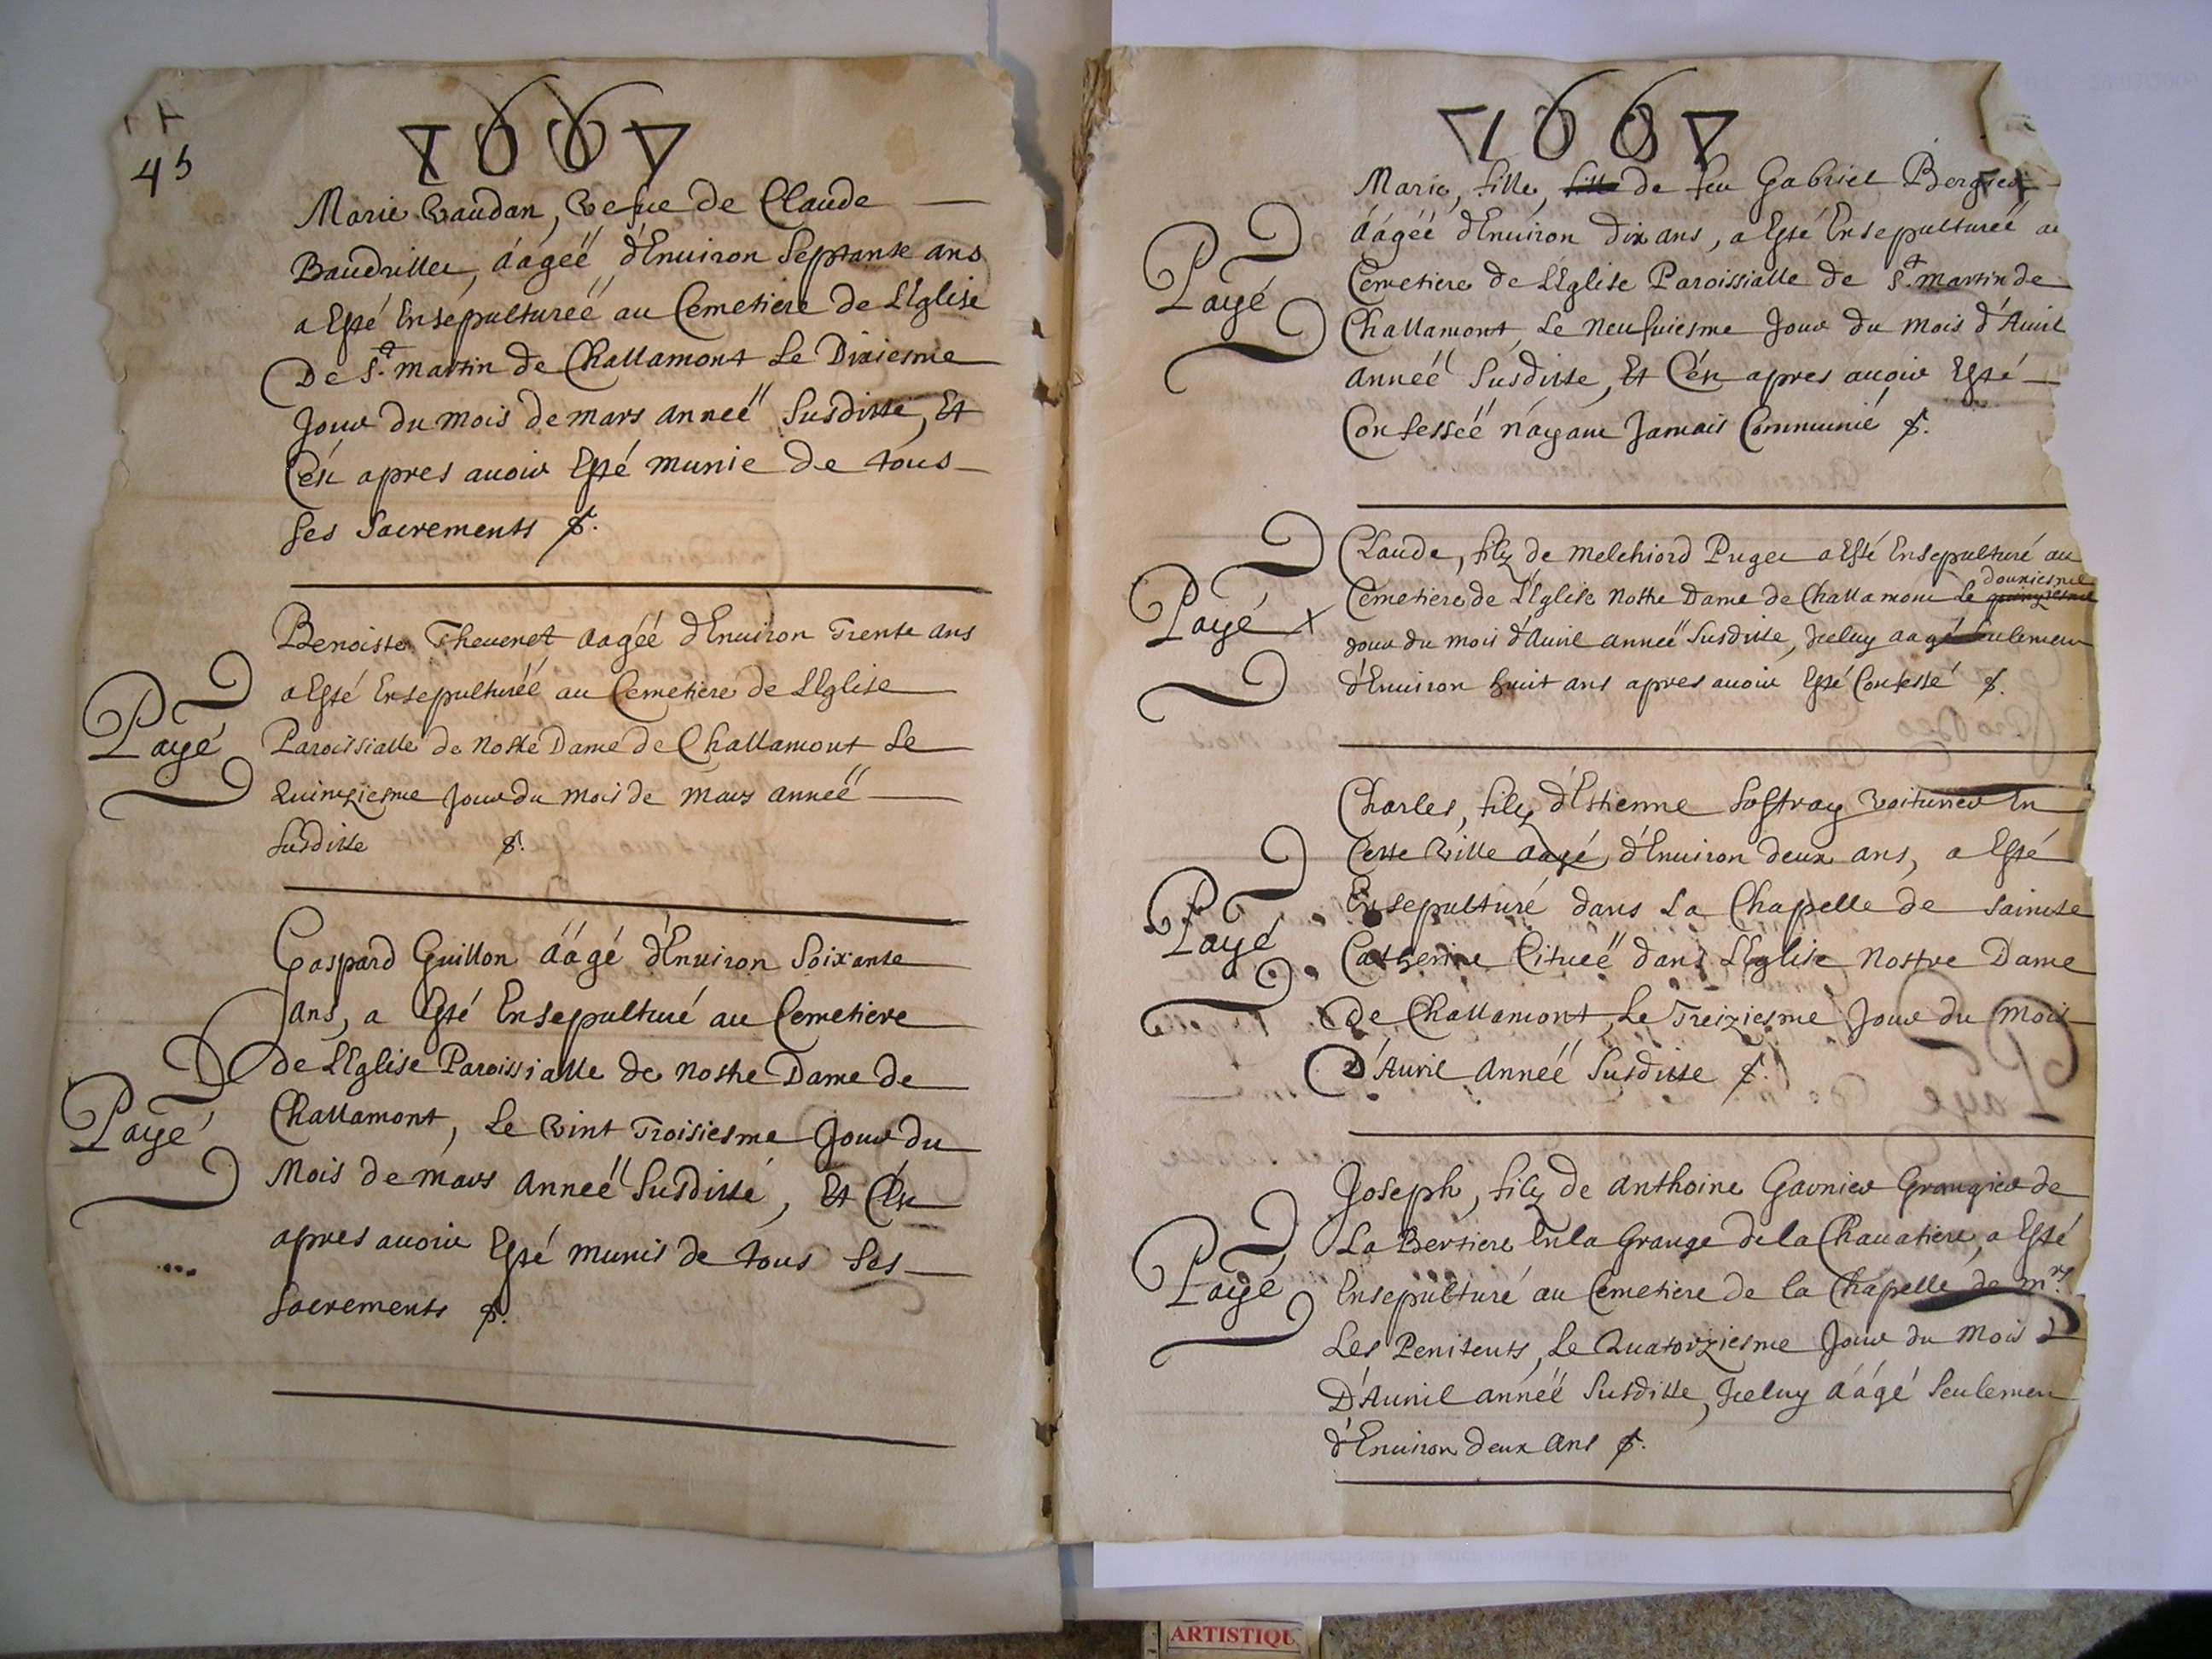 45
1667
Marie Vaudan, Vefue de Claude
Baudrillee, áágéé d'Enuiron Septante ans
a Esté Ensépulturéé au Cemetiere de L'Eglise
De St. Martin de Challamont Le Dixiesme
Jour du mois de mars anneé Susditte, Et
C'én apres auoir Esté munie de tous
ses Sacrements
Benoiste Theuenet aagéé d'Enuiron Trente ans
a Esté Ensepulturéé au Cemetiere de L'Eglise
Payé
Paroissialle de Nostre Dame de Challamont Le
Quinziesme Jour du mois de mars anneé
Susditte
Gaspard Guillon áágé d'Enuiron Soixante
ans, a Esté Ensepulturé au Cemetiere
de L'Eglise Paroissialle de Nostre Dame de
Payé
Challamont, Le Vint Troisiesme Jour du
Mois de mars Anneé Susditté, Et C'én
apres auoir Esté munis de tous Ses
Sacrements
1667
Marie, fille, fille de feu Gabriel
áágéé d'Enuiron Dix ans, a Esté Ensepulturéé au
Payé
Cemetiere de L'Eglise Paroissialle de St. Martin de
Challamont, Le Neufuiesme Jour du mois d'Auril
Annéé Susditte, Et C'én apres auoir Esté
Confesséé n'ayant Jamais Communié
Claude, filz de Melchiord Puget a Esté Ensepulturé au
douziesme
Cemetiere de L'Eglise Nostre Dame de Challamont Le quinziesme
Payé x
Jour du mois d'Auril anneé Susditte, Iceluy aagé Seulement
d'Enuiron huit ans apres auoir Esté Confessé
Charles, filz d'Estienne Soffray Voiturier En
Cette Ville aagé, d'Enuiron deux ans, a Esté
Ensepulturé dans La Chapelle de Saincte
Payé
Catherine Cituéé dans L'Eglise Nostre Dame
de Challamont, Le Treiziesme Jour du Mois
D'Auril Annéé Susditte
Joseph, filz de Anthoine Garnier Grangier de
La Bertiere En la Grange de la Chauatiere, a Esté
Payé
Ensepulturé au Cemetiere de la Chapelle de mrs.
Les Penitents, Le Quatorziesme Jour du Mois
D'Auril annéé Susditte, Iceluy áágé Seulement
d'Enuiron deux ans
ARTISTIQU